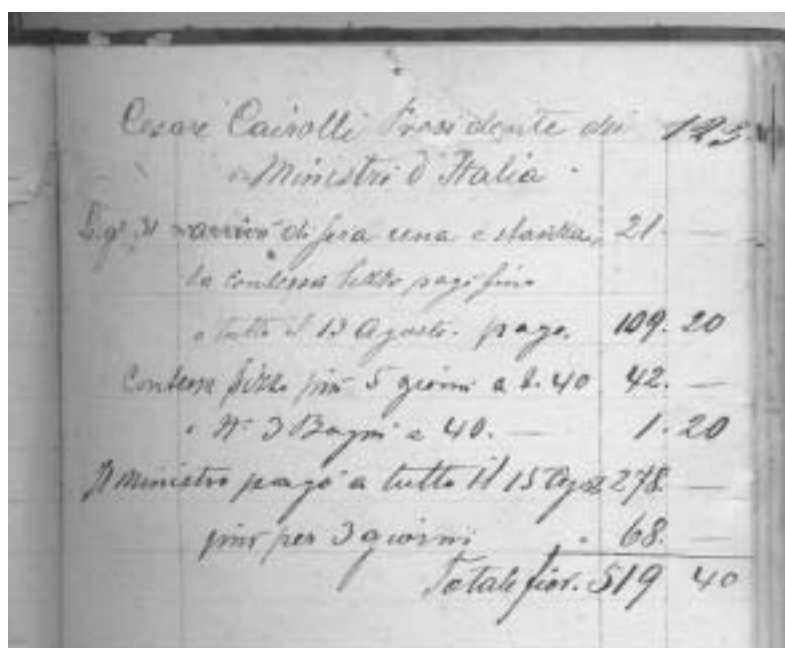 Cesare Cairolli Presidente dei 125.
Ministri d'Italia.
arrivo di sera cena e stanza, 21. —
la contessa pagò fino
a tutto il 13 Agosto. pago. 109. 20
Contessa più 5 giorni a 8.40 42. —
" N° 3 Bagni a 40. — 1. 20
Il Ministro pagò a tutto il 15 Ago 278. —
più per 3 giorni " 68. —
Totale fior. 519 40